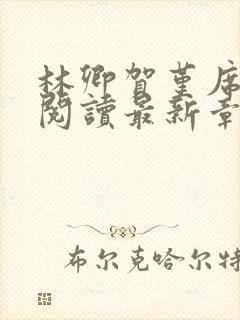 林卿賀堇席
閱讀最新章
布尔克哈尔特